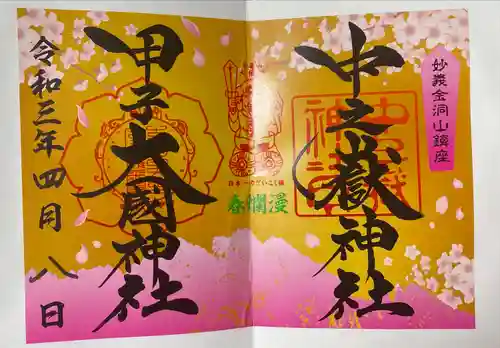 妙義金洞山鎮座
中之嶽神社
甲子大國神社
日本一のだいこく様
春爛漫
令和三年四月八日